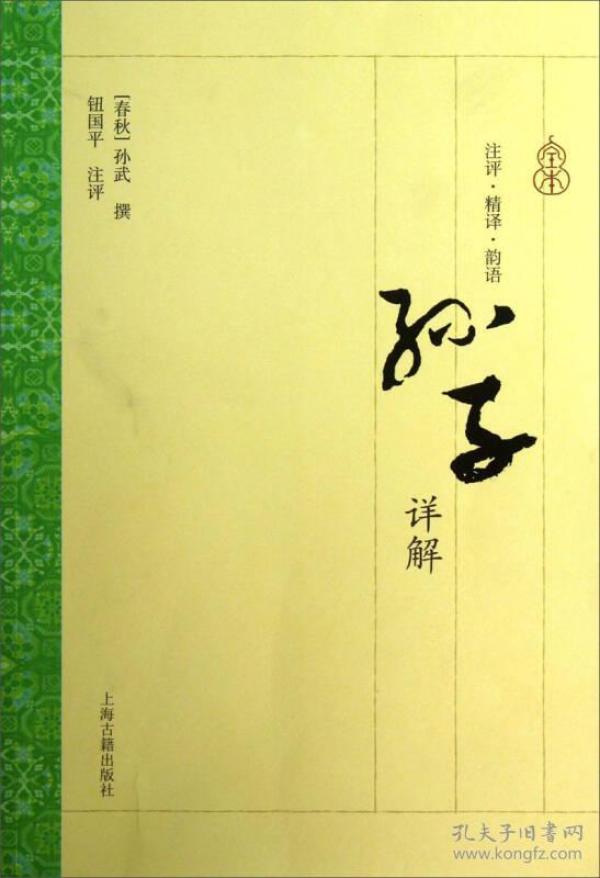 全本
注评·精译·韵语
孙子
详解
[春秋]孙武 撰
钮国平 注评
上海古籍出版社
孔夫子旧書网
www.kongfz.com